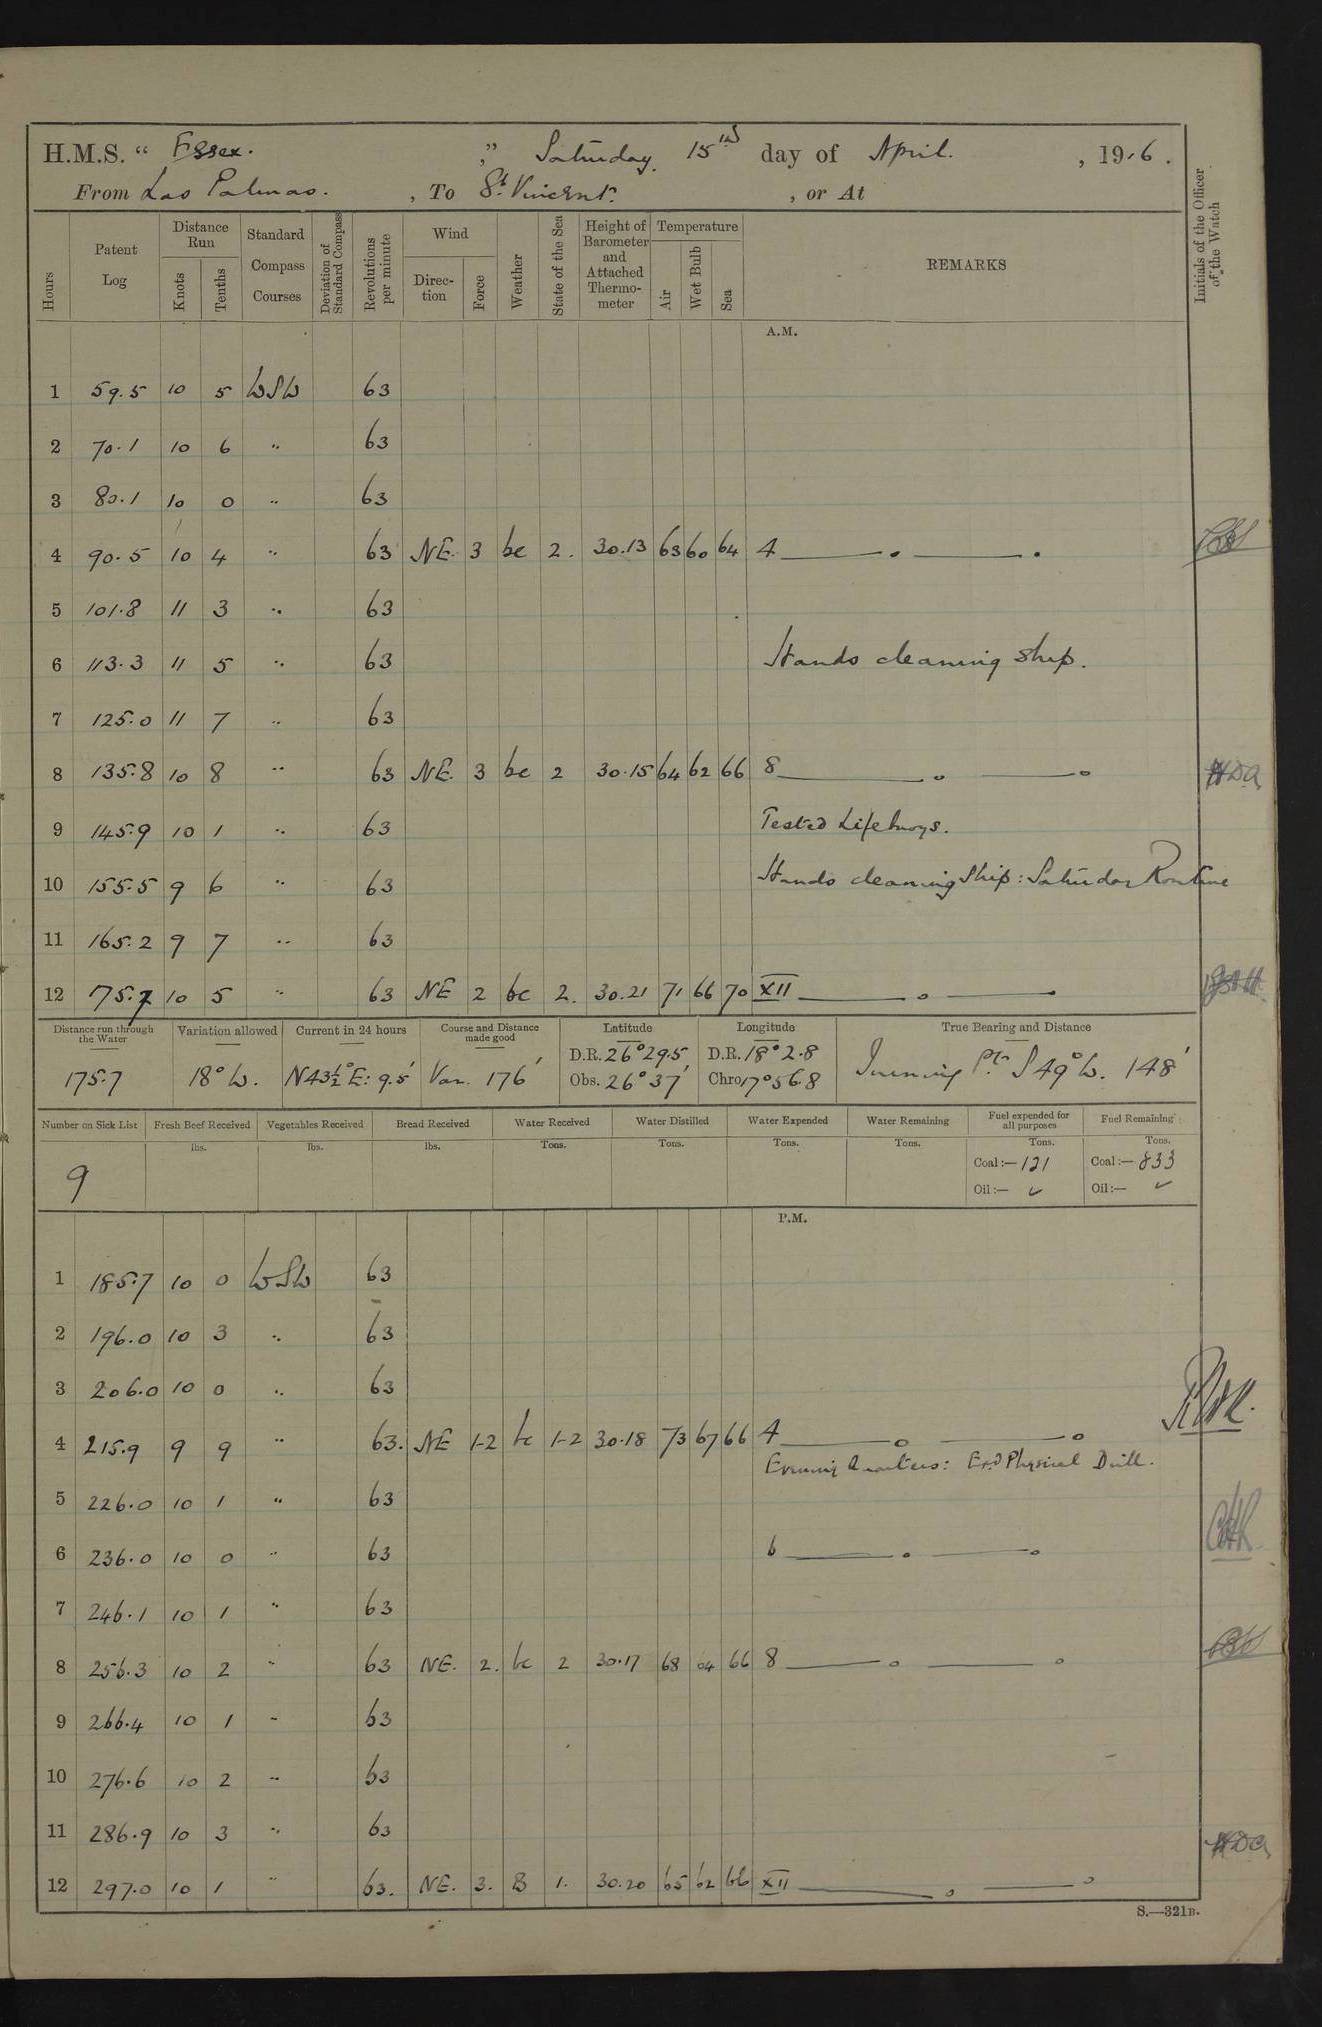 H.M.S. “ Essex. ,” Saturday. 15th day of April. , 191.6.
From Las Palmas. , To St. Vincent. , or At
Hours
Patent Log
Distance Run
Knots
Tenths
Standard Compass Courses
Deviation of Standard Compass
Revolutions per minute
Wind
Direction
Force
Weather
State of the Sea
Height of Barometer and Attached Thermometer
Temperature
Air
Wet Bulb
Sea
REMARKS
Initials of the Officer of the Watch
A.M.
1 59.5 10 5 WSW 63
2 70.1 10 6 " 63
3 80.1 10 0 " 63
4 90.5 10 4 " 63 NE. 3 bc 2. 30.13 63 60 64 4
5 101.8 11 3 " 63
6 113.3 11 5 " 63 Hands cleaning ship.
7 125.0 11 7 " 63
8 135.8 10 8 " 63 NE. 3 bc 2 30.15 64 62 66 8 HDA
9 145.9 10 1 " 63 Tested Lifebuoys.
10 155.5 9 6 " 63 Hands cleaning Ship: Saturday Routine
11 165.2 9 7 " 63
12 175.7 10 5 " 63 NE 2 bc 2. 30.21 71 66 70 XII
Distance run through the Water
175.7
Variation allowed
18° W.
Current in 24 hours
N43½°E: 9.5'
Course and Distance made good
Var. 176'
Latitude
D.R. 26° 29.5
Obs. 26° 37'
Longitude
D.R. 18° 2.8
Chro 17° 56.8
True Bearing and Distance
S 49° W. 148'
Number on Sick List
9
Fresh Beef Received
lbs.
Vegetables Received
lbs.
Bread Received
lbs.
Water Received
Tons.
Water Distilled
Tons.
Water Expended
Tons.
Water Remaining
Tons.
Fuel expended for all purposes
Tons.
Coal:— 121
Oil:— ✓
Fuel Remaining
Tons.
Coal:— 833
Oil:— ✓
P.M.
1 185.7 10 0 WSW 63
2 196.0 10 3 " 63
3 206.0 10 0 " 63
4 215.9 9 9 " 63. NE 1-2 bc 1-2 30.18 73 67 66 4
Evening Quarters: Exd Physical Drill.
5 226.0 10 1 " 63
6 236.0 10 0 " 63 6
7 246.1 10 1 " 63
8 256.3 10 2 " 63 NE. 2. bc 2 30.17 68 64 66 8
9 266.4 10 1 " 63
10 276.6 10 2 " 63
11 286.9 10 3 " 63
12 297.0 10 1 " 63. NE. 3. B 1. 30.20 65 62 66 XII HDA
S.—321B.